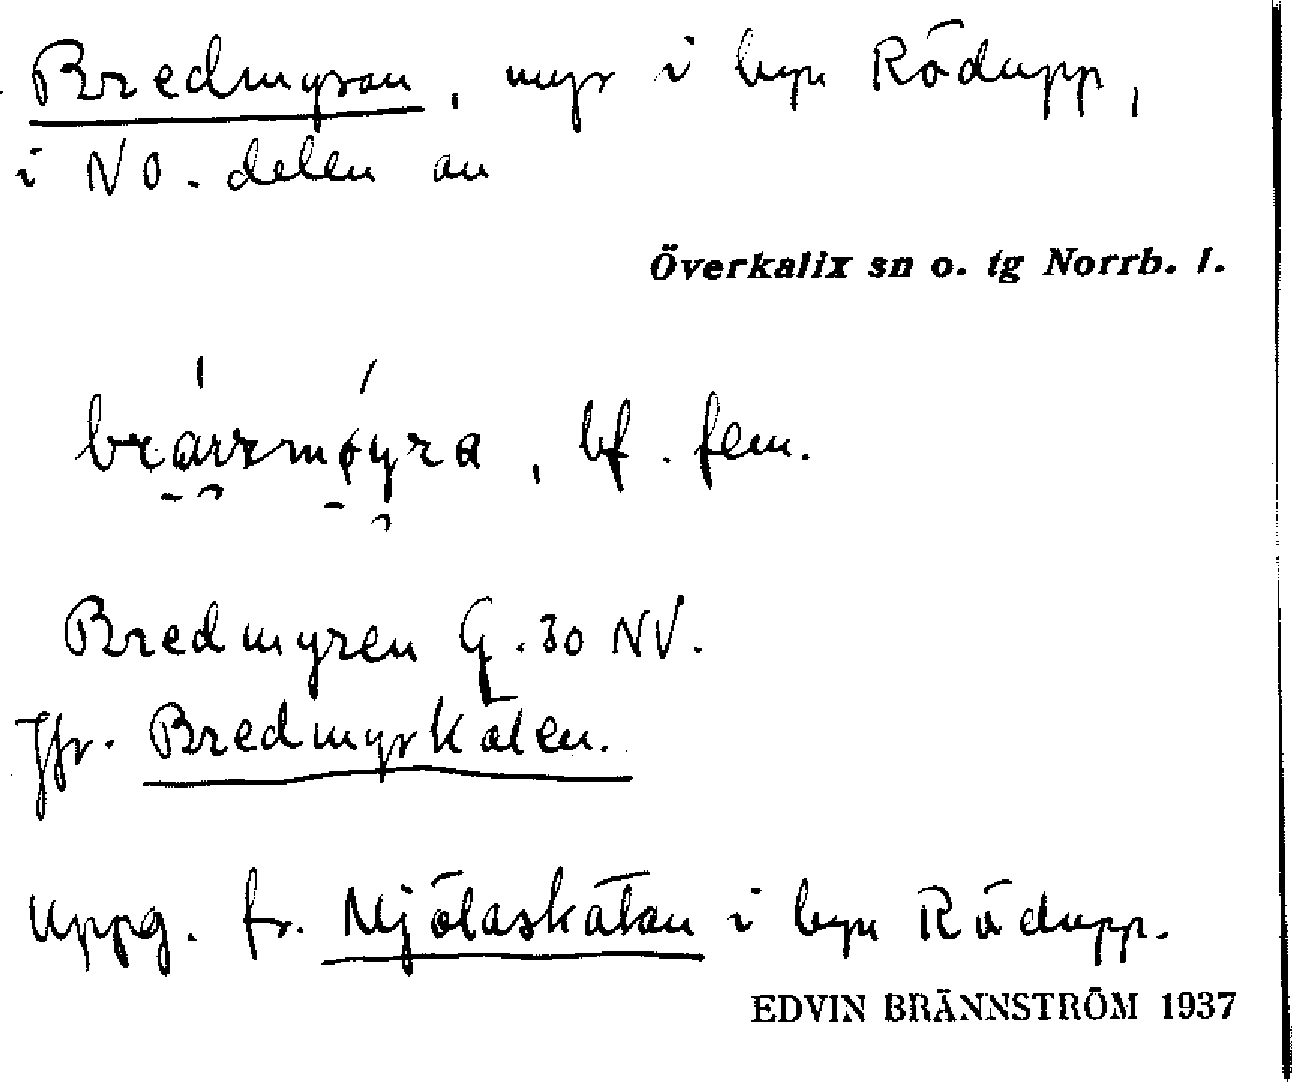 Bredmyran, myr i byn Rödupp,
i NO. delen av
Överkalix sn o. tg Norrb. l.
bf. fem.
Bredmyren G. 30 NV.
Jfr. Bredmyrkälen.
Uppg. fr. i byn Rödupp.
EDVIN BRÄNNSTRÖM 1937